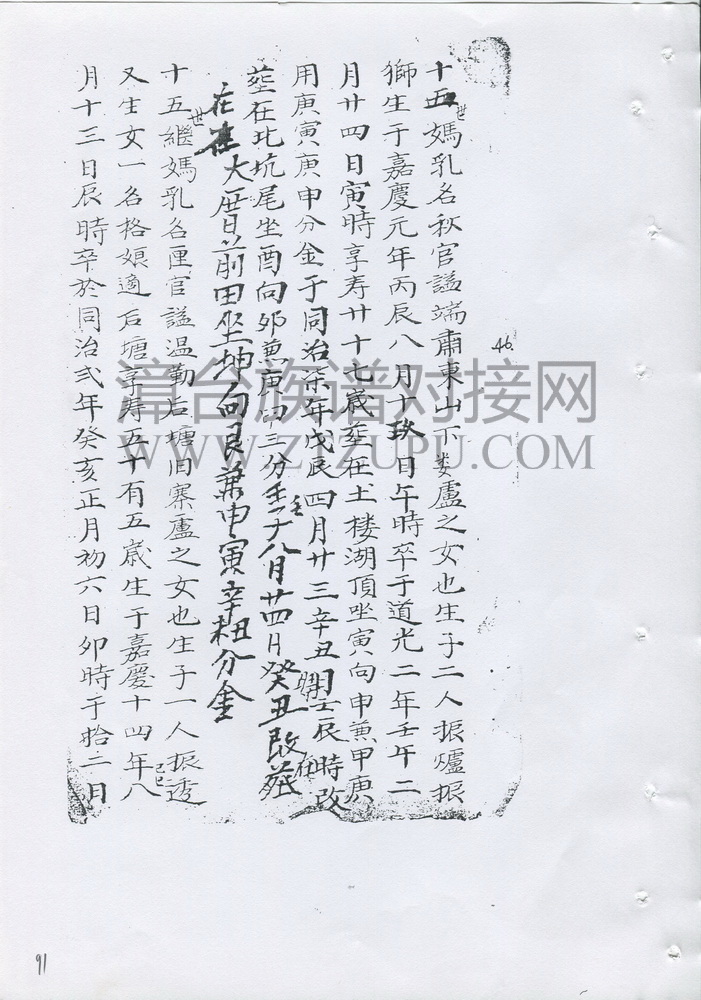 十五世媽乳名秋官謚端肅東山下娄盧之女也生子二人振爐振
獅生于嘉慶元年丙辰八月十玖日午時卒于道光二年壬午二
月廿四日寅時享寿廿十七歲葬在土楼湖頂坐寅向申兼甲庚
用庚寅庚申分金于同治柒年戊辰四月廿三辛丑日壬辰時改
葬在北坑尾坐酉向卯兼庚甲三分金 八月廿四日癸丑改葬在
在 大厝前田坐坤向艮兼申寅辛丑分金
十五世繼媽乳名匣官謚温勤后塘旧寨盧之女也生子一人振透
又生女一名格娘適后塘享寿五十有五歲生于嘉慶十四年己巳八
月十三日辰時卒於同治弍年癸亥正月初六日卯時于拾二月
46
漳台族谱对接网
WWW.ZTZUPU.COM
91